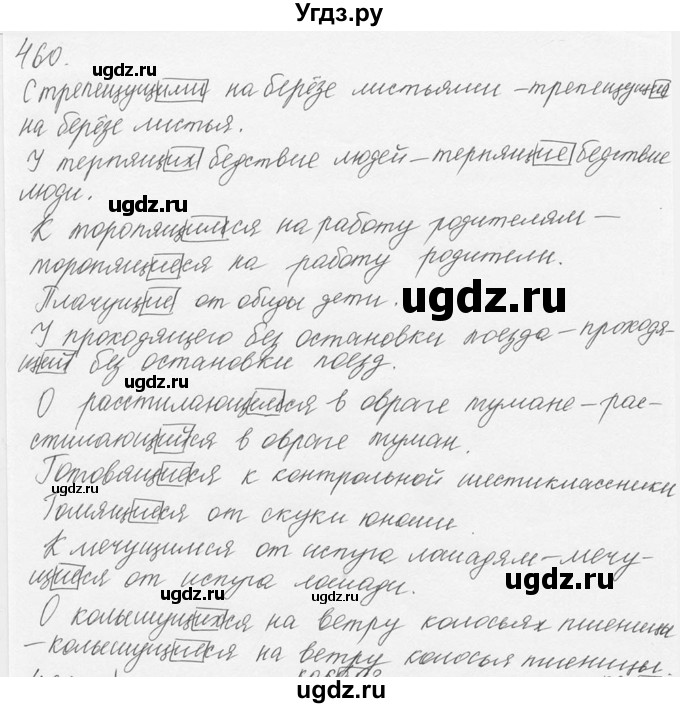 Угдз.ру
460.
С трепещущими на берёзе листьями - трепещущие
на берёзе листья.
У терпящих бедствие людей - терпящие бедствие
люди.
К торопящимся на работу родителям -
торопящиеся на работу родители.
Плачущие от обиды дети.
У проходящего без остановки поезда - проходя-
щий без остановки поезд.
О расстилающемся в овраге тумане - рас-
стилающийся в овраге туман.
Готовящиеся к контрольной шестиклассники
Томящиеся от скуки юноши.
К мечущимся от испуга лошадям - мечу-
щиеся от испуга лошади.
О колышущихся на ветру колосьях пшеницы
- колышущиеся на ветру колосья пшеницы.
ugdz.ru
ugdz.ru
ugdz.ru
ugdz.ru
ugdz.ru
ugdz.ru
ugdz.ru
ugdz.ru
ugdz.ru
ugdz.ru
ugdz.ru
ugdz.ru